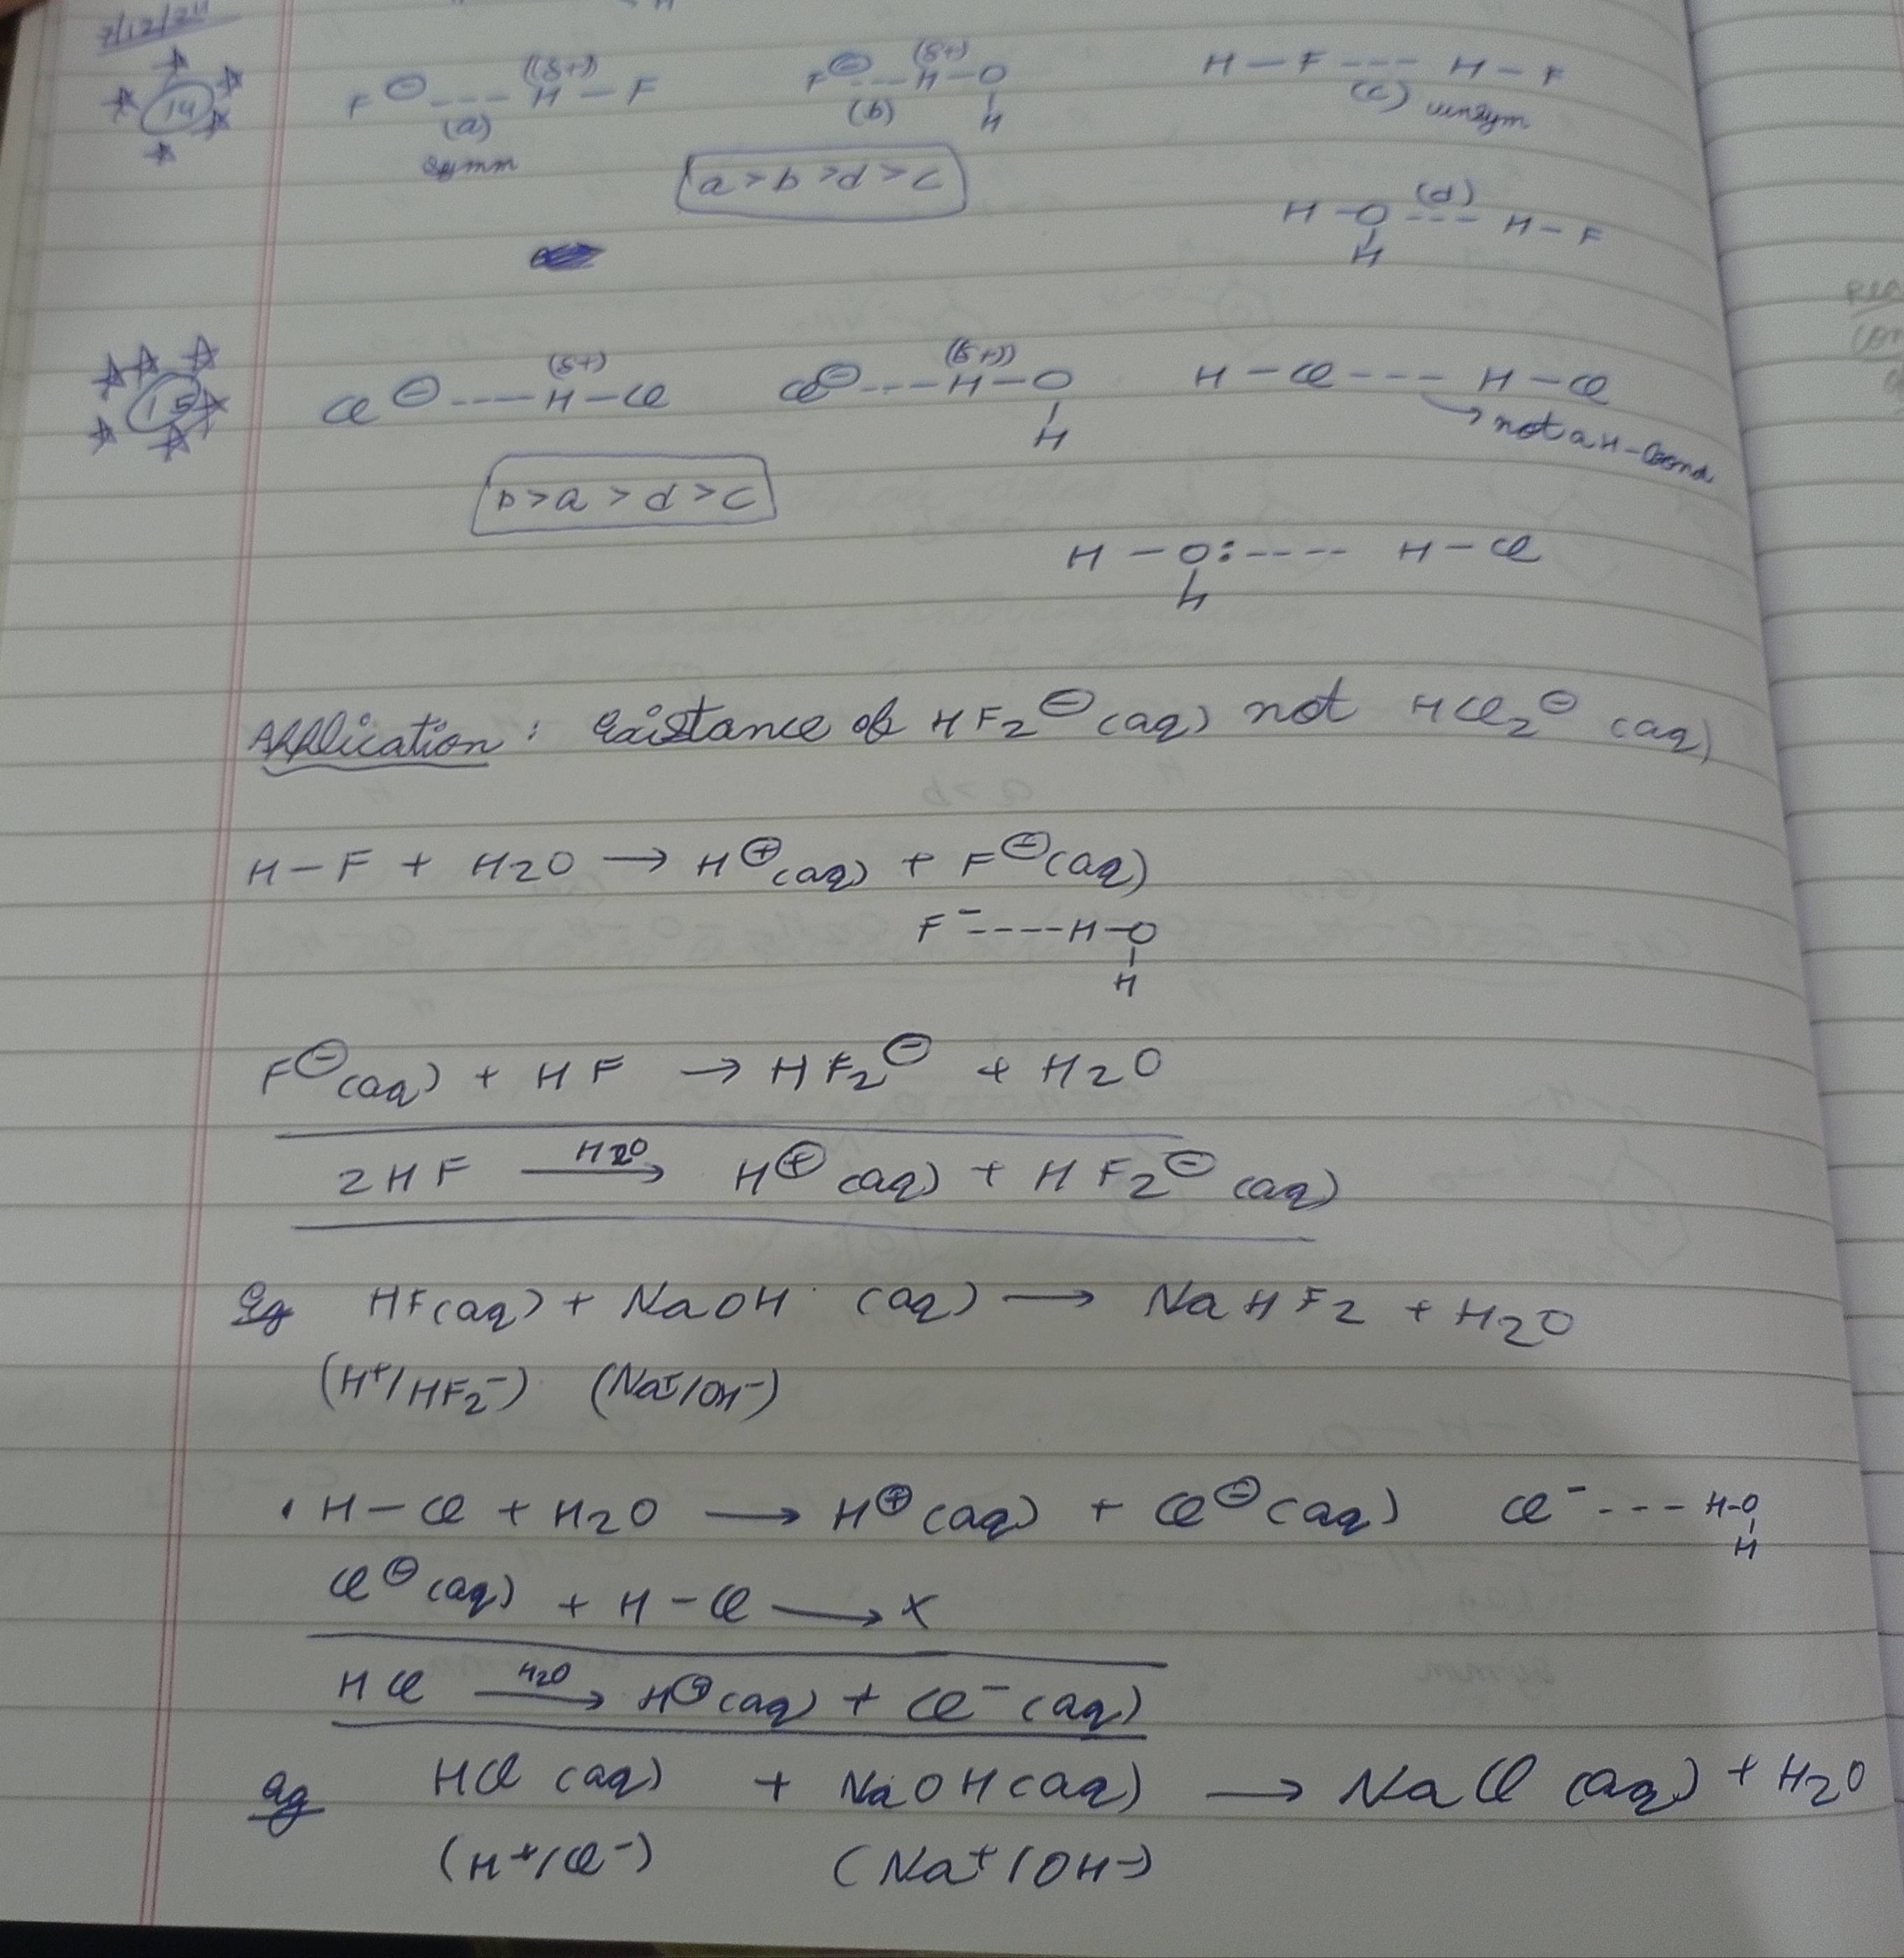 7/12/24
14 F⊖ --- H(δ+) – F F⊖ --- H(δ+) – O H – F --- H – F
(a) (b) H (c) unsym
symm
a > b > d > c
(d)
H – O --- H – F
H
15 Cl⊖ ---- H(δ+) – Cl Cl⊖ ---- H(δ+) – O H – Cl --- H – Cl
H → not a H-Bond
b > a > d > c
H – O: ---- H – Cl
H
Application : Existance of HF2⊖ (aq) not HCl2⊖ (aq)
H – F + H2O → H⊕(aq) + F⊖(aq)
F⁻ ---- H – O
H
F⊖(aq) + HF → HF2⊖ + H2O
2HF —H2O→ H⊕(aq) + HF2⊖(aq)
Eg HF(aq) + NaOH (aq) → NaHF2 + H2O
(H⁺/HF2⁻) (Na⁺/OH⁻)
• H – Cl + H2O → H⊕(aq) + Cl⊖(aq) Cl⁻ --- H-O
H
Cl⊖(aq) + H – Cl → X
HCl —H2O→ H⊕(aq) + Cl⁻(aq)
eg HCl (aq) + NaOH(aq) → NaCl (aq) + H2O
(H⁺/Cl⁻) (Na⁺/OH⁻)